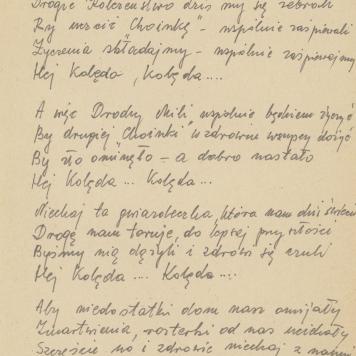 Drogie Koleżeństwo dziś my się zebrali
By uczcić "Choinkę" - wspólnie zaśpiewali
Życzenia składajmy - wspólnie zaśpiewajmy
Hej Kolęda, Kolęda....
A więc Drodzy Mili, wspólnie będziem życzyć
By drugiej "Choinki" w zdrowiu wszyscy dożyć
By zło ominęło - a dobro nastało
Hej Kolęda... Kolęda...
Niechaj ta gwiazdeczka, która nam dziś świeci
Drogę nam toruje, do lepszej przyszłości
Byśmy nią dążyli i zdrowi się czuli
Hej Kolęda.... Kolęda...
Aby niedostatki dom nasz omijały
Zmartwienia, rozterki od nas uciekały
Szczęście no i zdrowie niechaj z nami